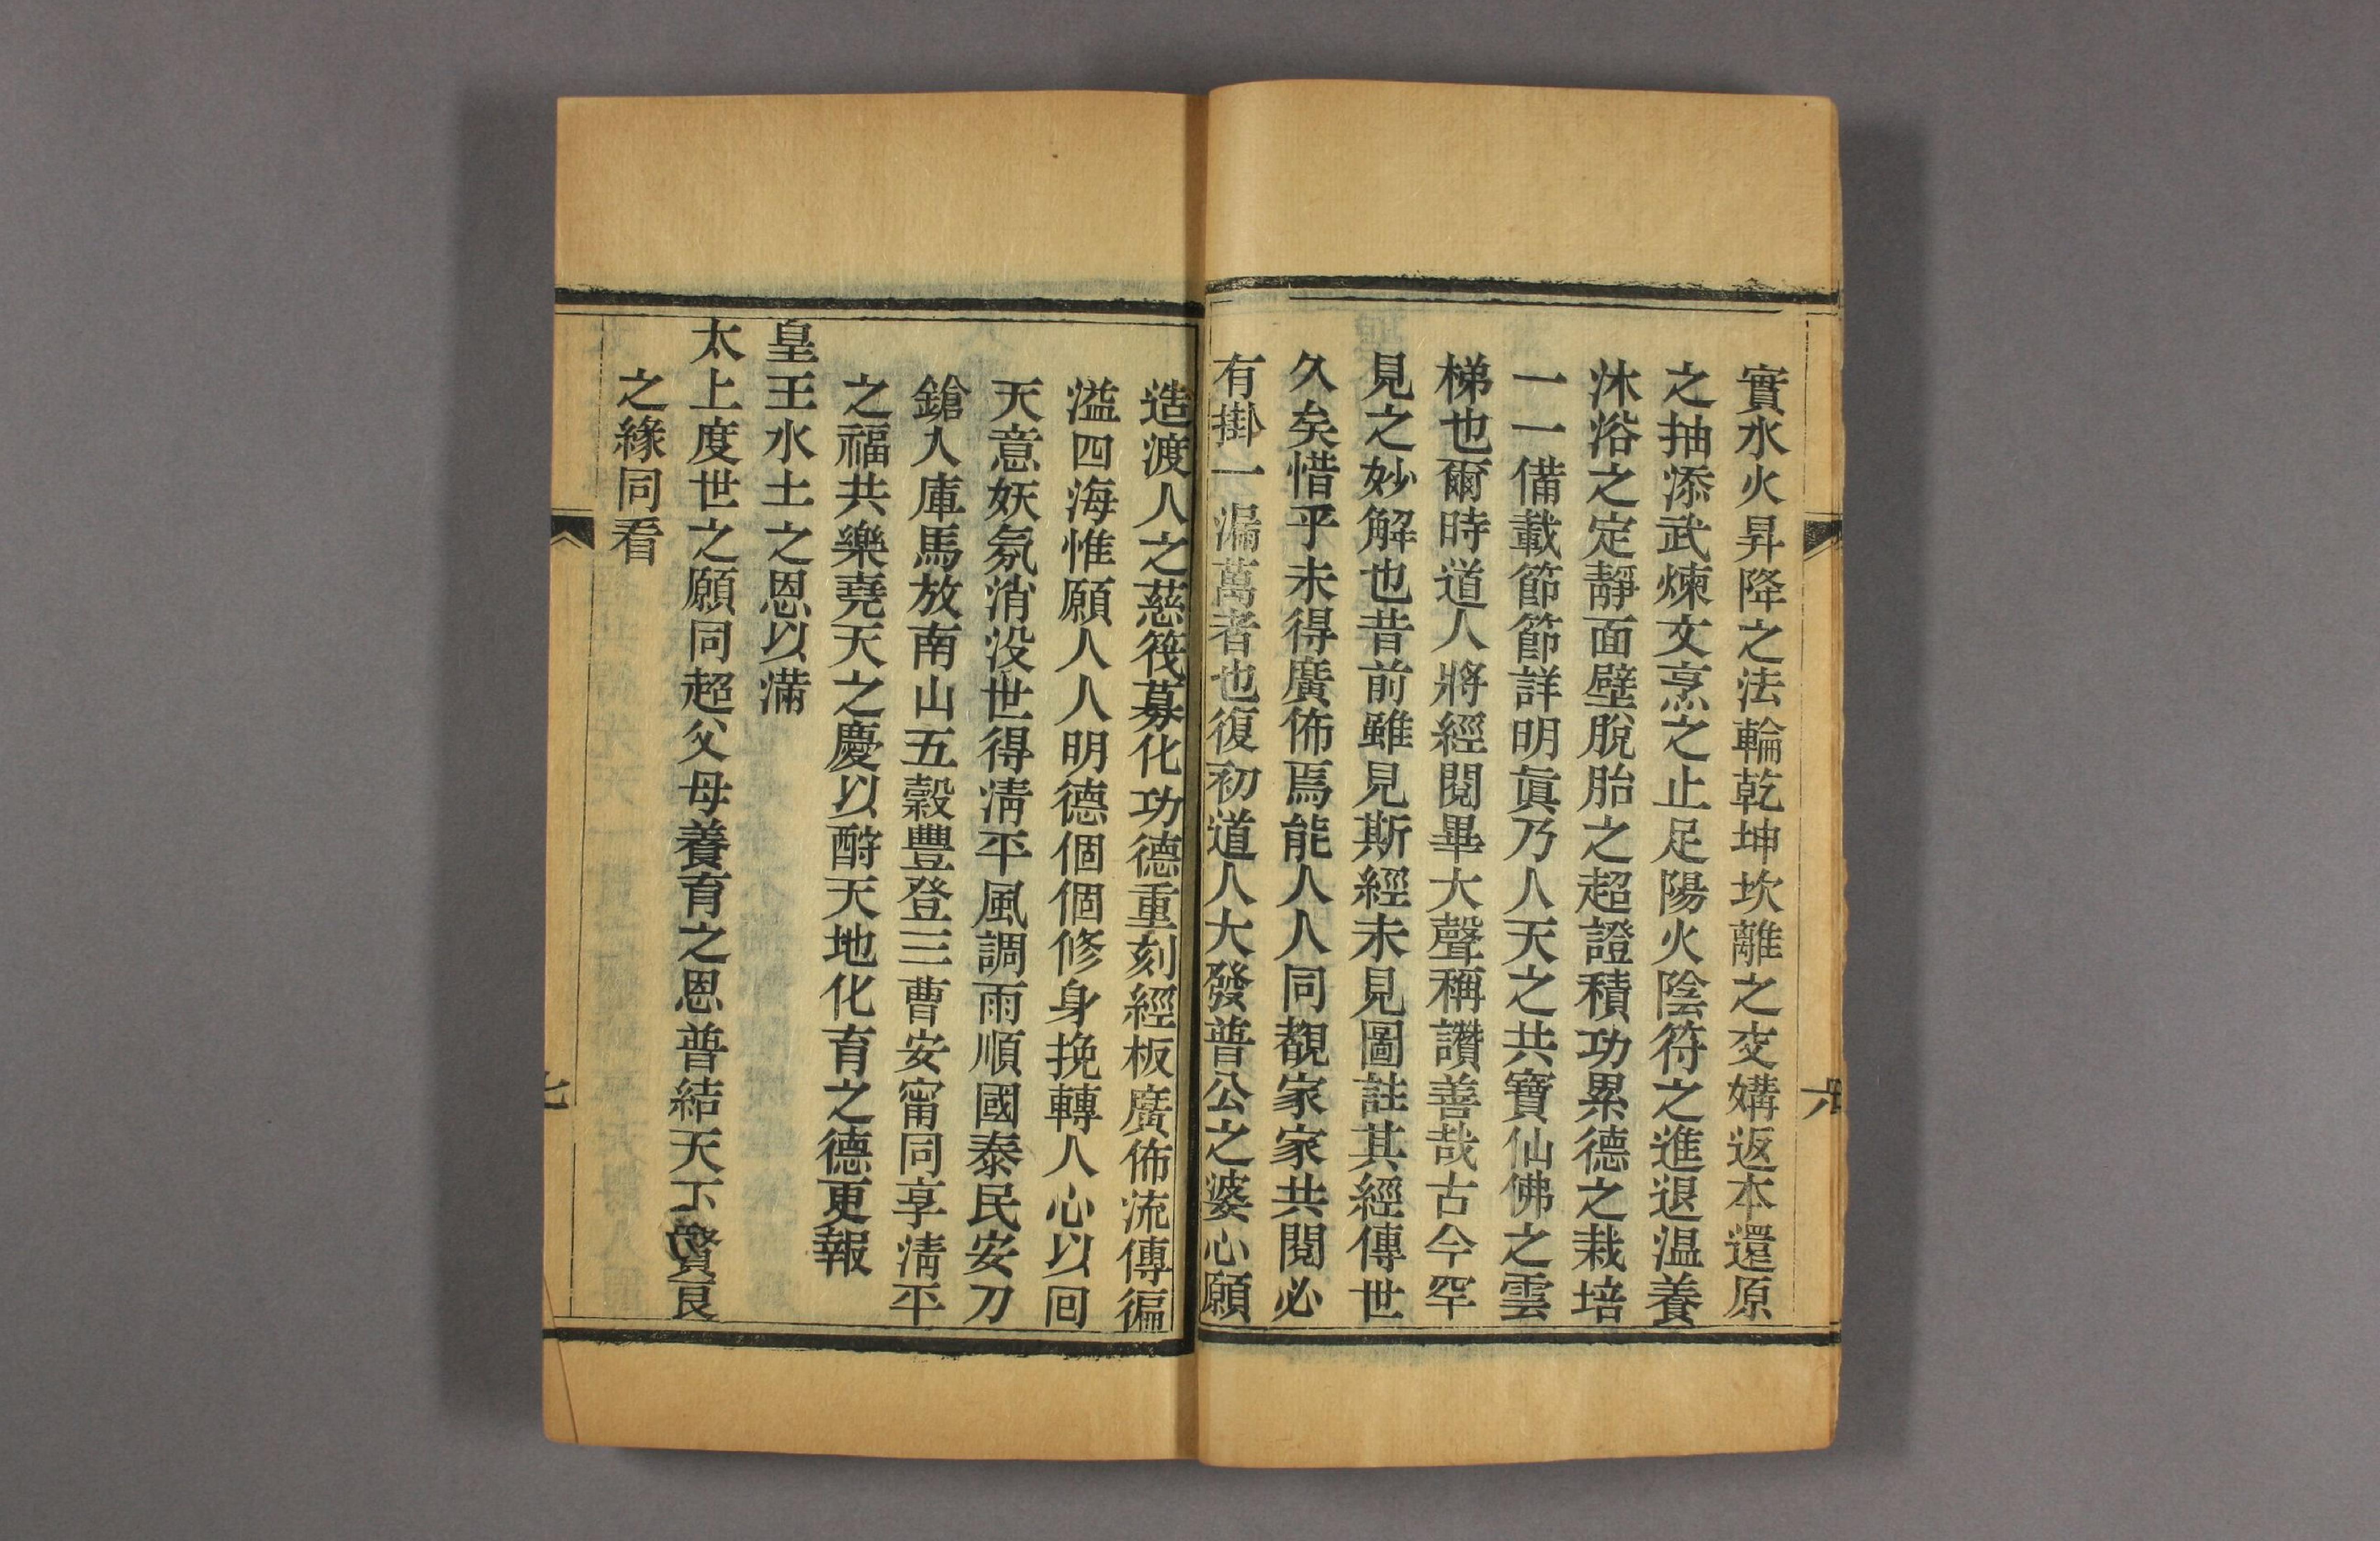 實水火昇降之法輪乾坤坎離之交媾返本還原
之抽添武煉文烹之止足陽火陰符之進退温養
沐浴之定靜面壁脫胎之超證積功累德之栽培
一一備載節節詳明眞乃人天之共寶仙佛之雲
梯也爾時道人將經閱畢大聲稱讚善哉古今罕
見之妙解也昔前雖見斯經未見圖註其經傳世
久矣惜乎未得廣佈焉能人人同覩家家共閱必
有掛一漏萬者也復初道人大發普公之婆心願
六
造渡人之慈筏募化功德重刻經板廣佈流傳徧
溢四海惟願人人明德個個修身挽轉人心以囘
天意妖氛消没世得清平風調雨順國泰民安刀
鎗入庫馬放南山五穀豐登三曹安甯同享清平
之福共樂堯天之慶以酧天地化育之德更報
皇王水土之恩以滿
太上度世之願同超父母養育之恩普結天下賢良
之緣同看
七